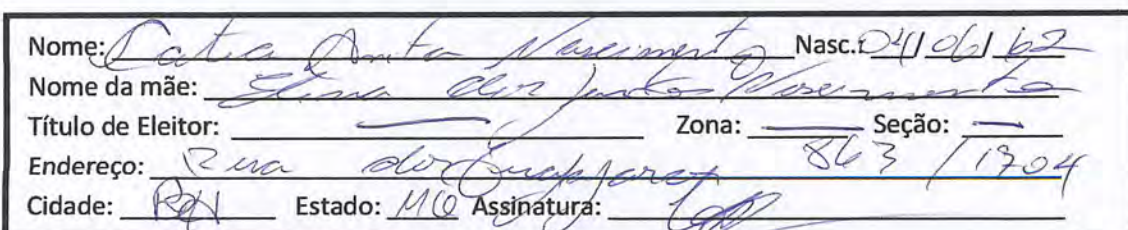 Nome: Catia Anita Nascimento Nasc.: 04/06/62
Nome da mãe: dos Santos Nascimento
Título de Eleitor: — Zona: — Seção: —
Endereço: Rua dos 863 / 1704
Cidade: BH Estado: MG Assinatura: